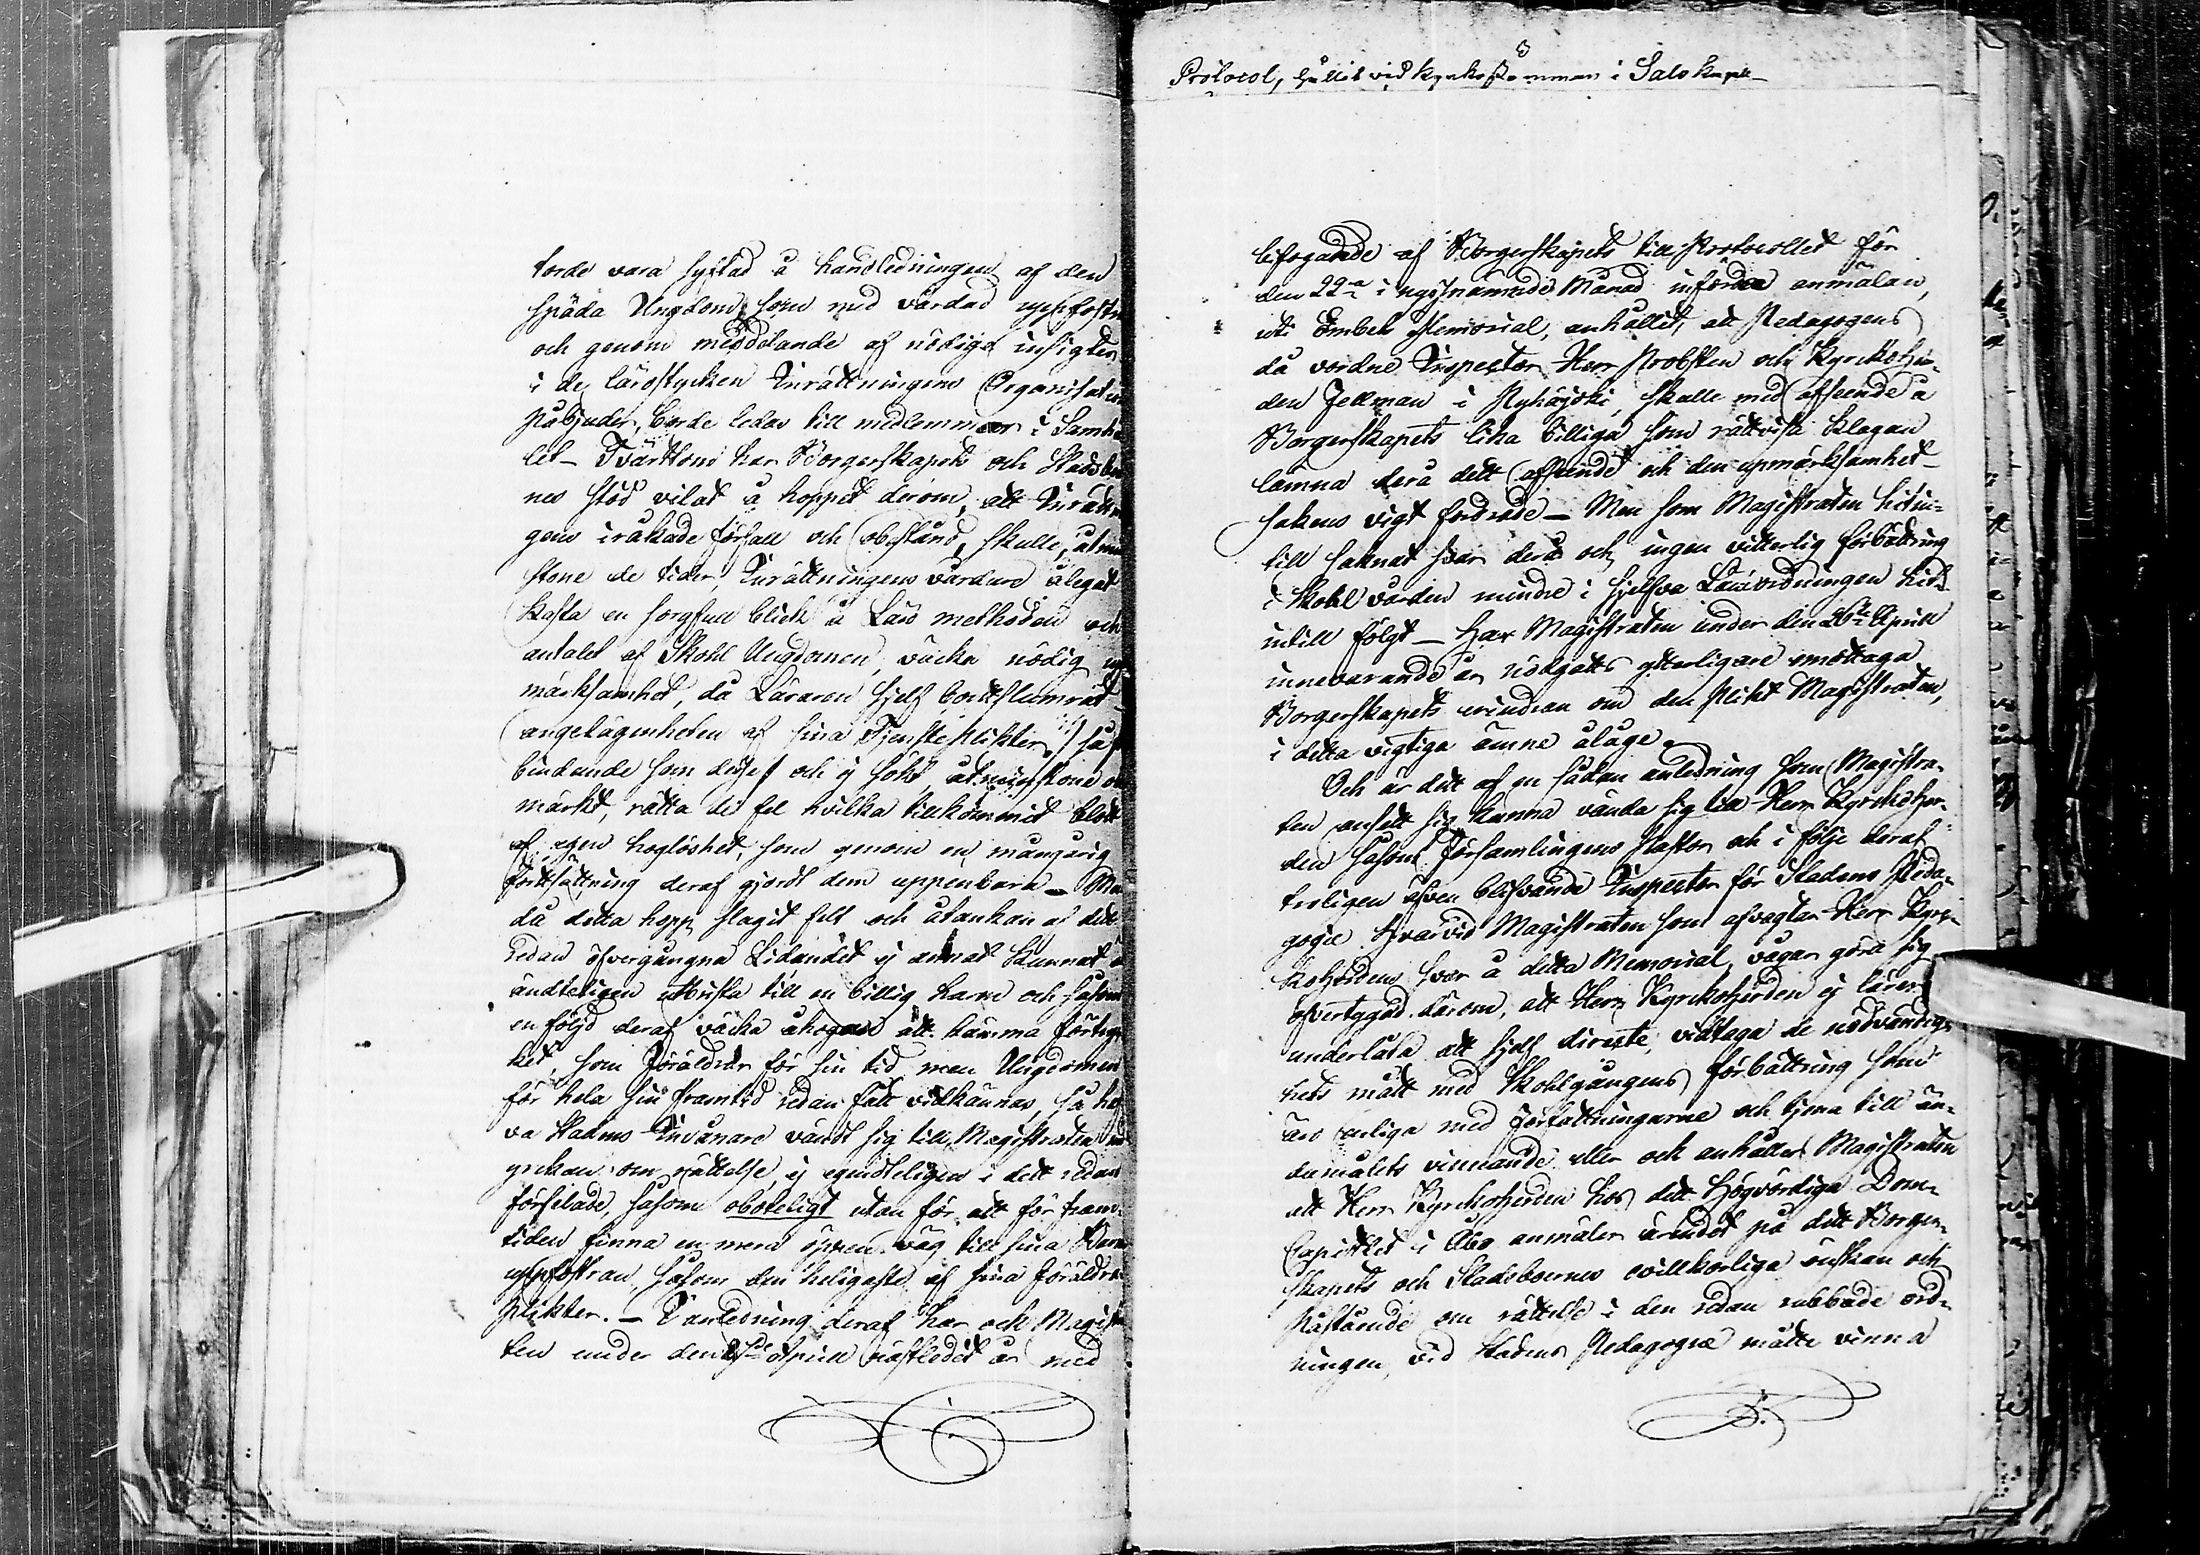 torde vara syftad å handledningen af den
späda Ungdom, som med vårdad uppfostr
och genom meddelande af nödiga insigter
i de lärostycken Inrättningens Organisation
påbjuder, borde ledas till medlemmar i Samhä
let – Tvärttom har Borgerskapets och Stadsbo
nes stöd vilat å hoppet derom, att Inrättn
gens iråkade förfall och obestånd, skulle, åtmin
stone de tider, Inrättningens vårdare ålegat
kasta en sorgfull blick å Läro methoden och
antalet af Skohl Ungdomen, väcka nödig upp
märksamhet, då Läraren sjelf bortslumrat
angelägenheten af sina Tjenstepligter, så
bindande som desse och ej sökt åtminstone
märkt, rätta de fel hvilka tillkommit blott
af egen hoglöshet, som genom en mångårig
fortsättning deraf gjordt dem uppenbara – Men
då detta hopp slagit felt och åtankan af dett
redan öfvergångna Lidandet ej annat kunnat
ändteligen utbrista till en billig harm och såsom
en följd deraf väcka åhogan att hämma förtryc
ket, som Föräldrar för sin tid men Ungdomen
för hela sin framtid redan fått vidkännas, så haf
va Stadens Invånare vändt sig till Magistraten med
yrckan om rättelse, ej egenteligen i dett redan
förfelade, såsom oboteligt utan för att för fram-
tiden finna en mera öppen väg till sina Barns
uppfostran, såsom den heligaste af sina föräldra
plikter. – I anledning deraf har och Magistra
ten under den April nästledit år med
3
Protocol, hållit vid kyrkostämman i Salo kapell
bifogande af Borgerskapets till Protocollet för
den 22a i nyssnämnde Månad införda anmälan,
uti Embets Memorial, anhållit, att Pedagogiens
då vordne Inspector Herr Probsten och Kyrckoher-
den Jellman i Pyhäjoki, skulle med afseende å
Borgerskapets lika billiga som rättvisa klagan
lämna dera dett afseende och den upmärksamhet
sakens vigt fordrade – Men som Magistraten hitin-
till saknat svar derå och ingen vitterlig förbättring
i Skohl vården mindre i sjelfva Läroordningen hit
intill följt – Har Magistraten under den 26te April
innevarande år nödgatts ytterligare emottaga
Borgerskapets erindran om den plikt Magistraten,
i detta vigtiga ämne ålåge.
Och är dett af en sådan anledning som Magistra-
ten ansett sig kunna vända sig till Herr Kyrckoher-
den såsom Församlingens Pastor och i följe deraf
troligen äfven blifvande Inspector för Stadens Peda-
gogie. Hvarvid Magistraten som afvagtar Herr Kyrc-
koherdens svar å detta Memorial, vågar göra sig
öfvertygad därom, att Herr Kyrckoherden ej lärer
underlåta att sjelf directe vidtaga de nödvändig-
hets mått med Skohlgångens förbättring som
äro enliga med författningarne och tjena till än-
damålets vinnande eller och anhåller Magistraten
att Herr Kyrckoherden hos dett Högvördiga Dom-
Capitlet i Åbo anmäler ärendet på dett Borger-
skapets och Stadsboernes ovillkorliga önskan och
påstående om rättelse i den redan rubbade ord-
ningen, vid Stadens Pedagogie måtte vinna